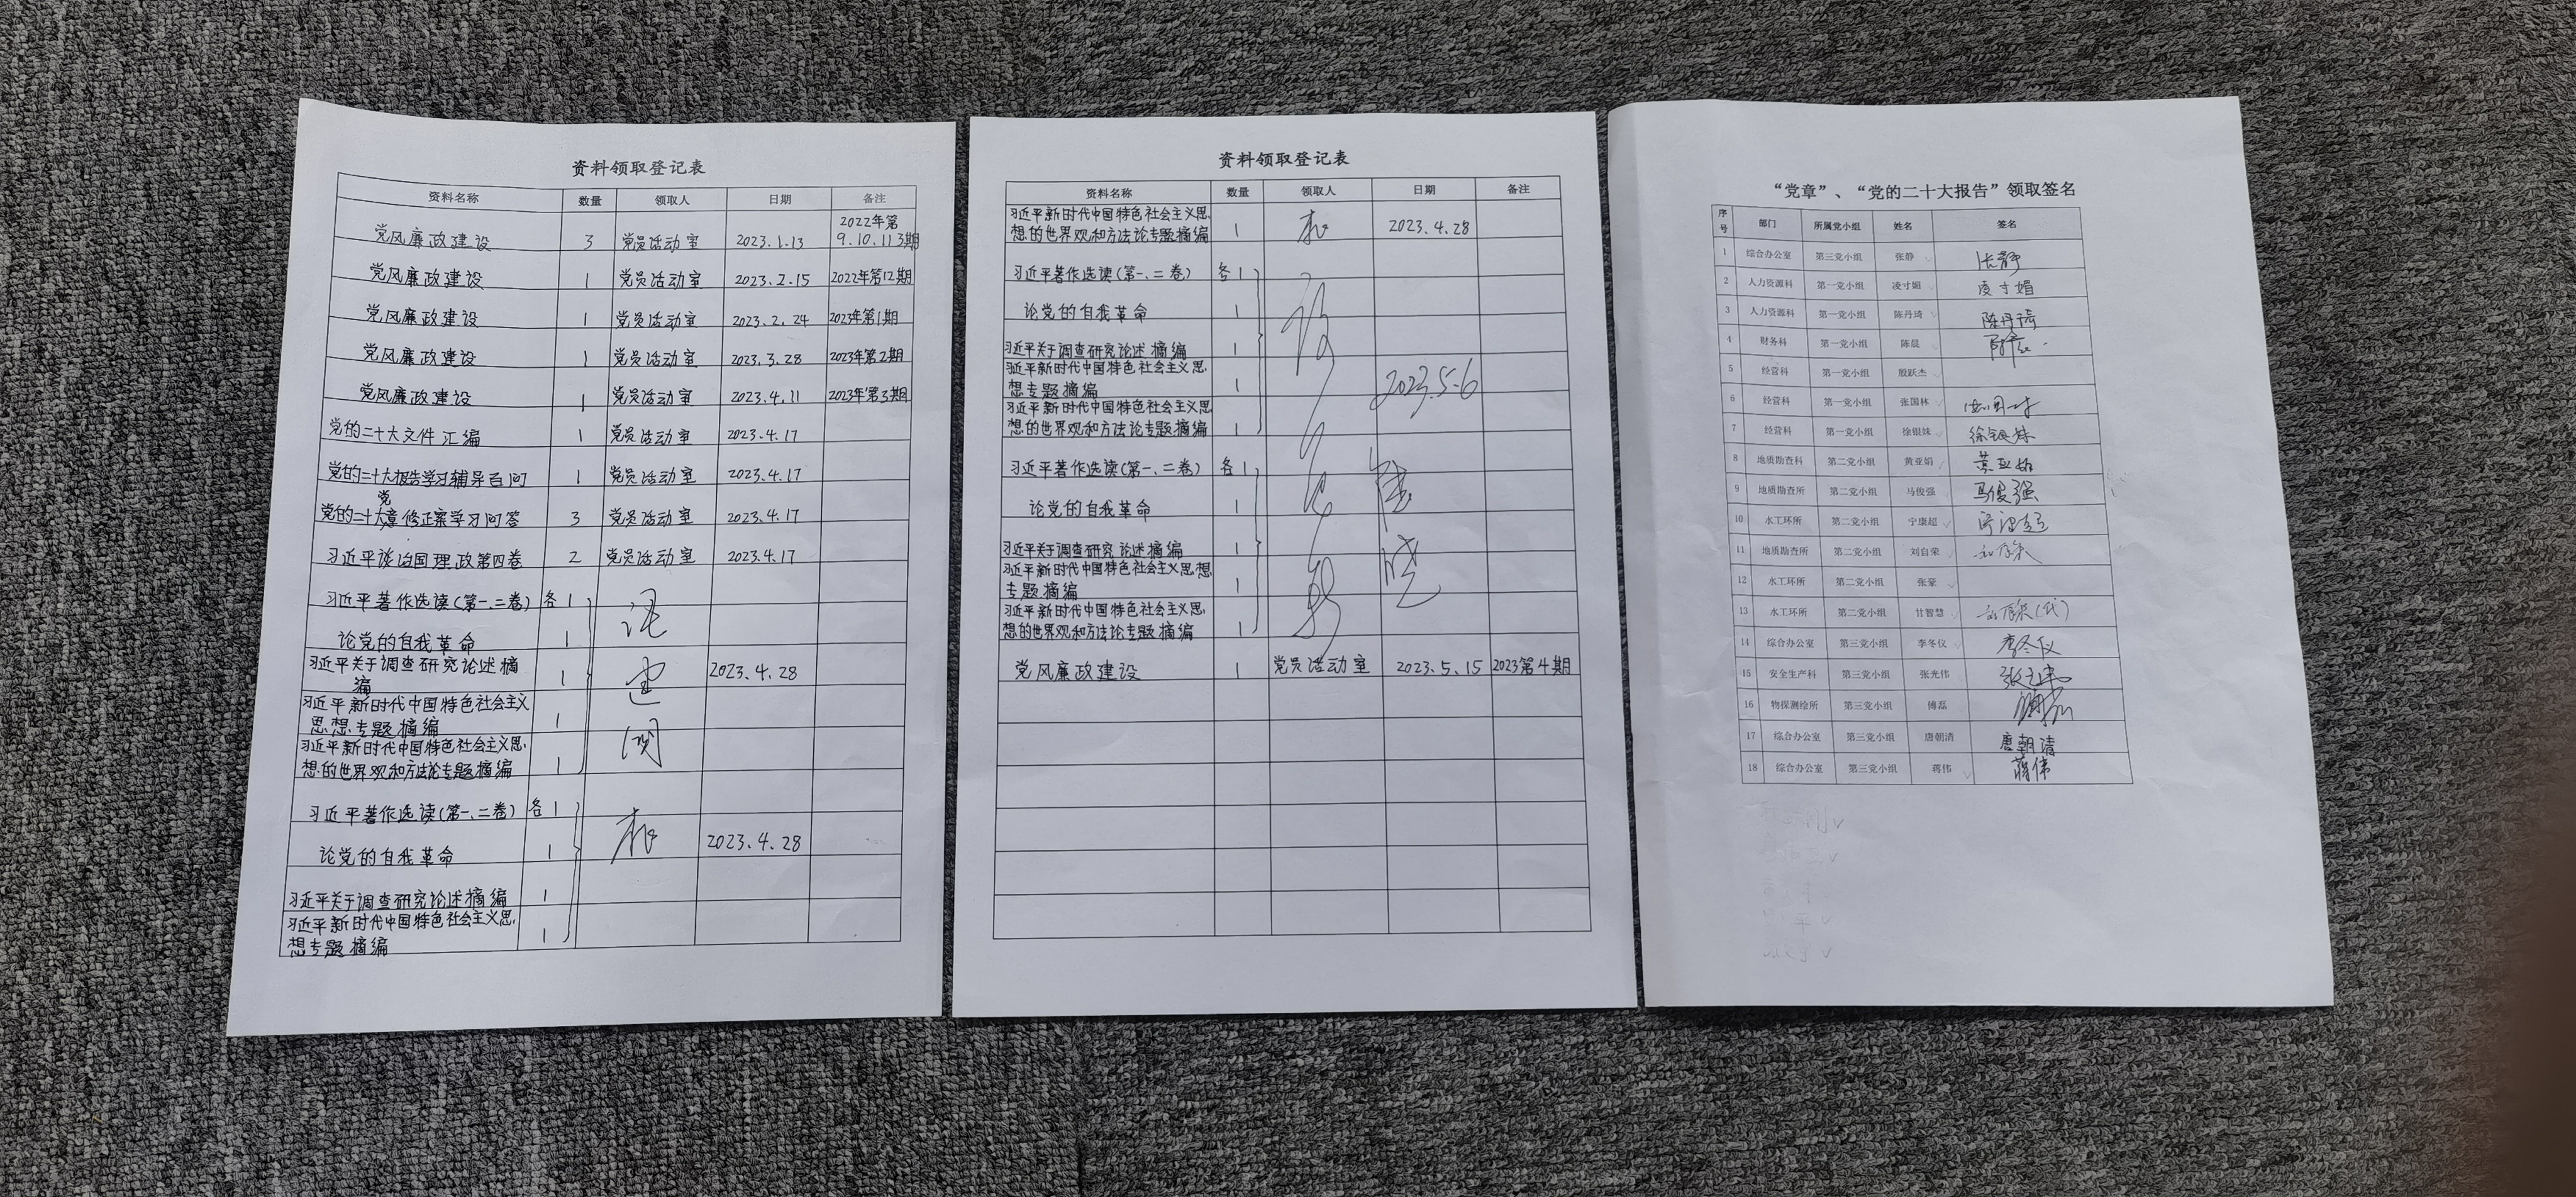 资料领取登记表
资料名称 数量 领取人 日期 备注
党风廉政建设 3 党员活动室 2023.1.13 2022年第
9.10.11 3期
党风廉政建设 1 党员活动室 2023.2.15 2022年第12期
党风廉政建设 1 党员活动室 2023.2.24 2023年第1期
党风廉政建设 1 党员活动室 2023.3.28 2023年第2期
党风廉政建设 1 党员活动室 2023.4.11 2023年第3期
党的二十大文件汇编 1 党员活动室 2023.4.17
党的二十大报告学习辅导百问 1 党员活动室 2023.4.17
党的二十大党章修正案学习问答 3 党员活动室 2023.4.17
习近平谈治国理政第四卷 2 党员活动室 2023.4.17
习近平著作选读(第一、二卷) 各1
论党的自我革命 1
习近平关于调查研究论述摘
编 1 2023.4.28
习近平新时代中国特色社会主义
思想专题摘编 1
习近平新时代中国特色社会主义思
想的世界观和方法论专题摘编 1
习近平著作选读(第一、二卷) 各1
论党的自我革命 1 2023.4.28
习近平关于调查研究论述摘编 1
习近平新时代中国特色社会主义思
想专题摘编 1
资料领取登记表
资料名称 数量 领取人 日期 备注
习近平新时代中国特色社会主义思
想的世界观和方法论专题摘编 1 2023.4.28
习近平著作选读(第一、二卷) 各1
论党的自我革命 1
习近平关于调查研究论述摘编 1
习近平新时代中国特色社会主义思
想专题摘编 1 2023.5.6
习近平新时代中国特色社会主义思
想的世界观和方法论专题摘编 1
习近平著作选读(第一、二卷) 各1
论党的自我革命 1
习近平关于调查研究论述摘编 1
习近平新时代中国特色社会主义思想
专题摘编 1
习近平新时代中国特色社会主义思
想的世界观和方法论专题摘编 1
党风廉政建设 1 党员活动室 2023.5.15 2023第4期
“党章”、“党的二十大报告”领取签名
序号 部门 所属党小组 姓名 签名
1 综合办公室 第三党小组 张静 张静
2 人力资源科 第一党小组 凌寸媚 凌寸媚
3 人力资源科 第一党小组 陈丹琦 陈丹琦
4 财务科 第一党小组 陈晨
5 经营科 第一党小组 殷跃杰
6 经营科 第一党小组 张国林 张国林
7 经营科 第一党小组 徐银妹 徐银妹
8 地质勘查科 第二党小组 黄亚娟 黄亚娟
9 地质勘查所 第二党小组 马俊强 马俊强
10 水工环所 第二党小组 宁康超 宁康超
11 地质勘查所 第二党小组 刘自荣 刘自荣
12 水工环所 第二党小组 张豪
13 水工环所 第二党小组 甘智慧 刘自荣(代)
14 综合办公室 第三党小组 李冬仪 李冬仪
15 安全生产科 第三党小组 张光伟 张光伟
16 物探测绘所 第三党小组 傅磊 傅磊
17 综合办公室 第三党小组 唐朝清 唐朝清
18 综合办公室 第三党小组 蒋伟 蒋伟